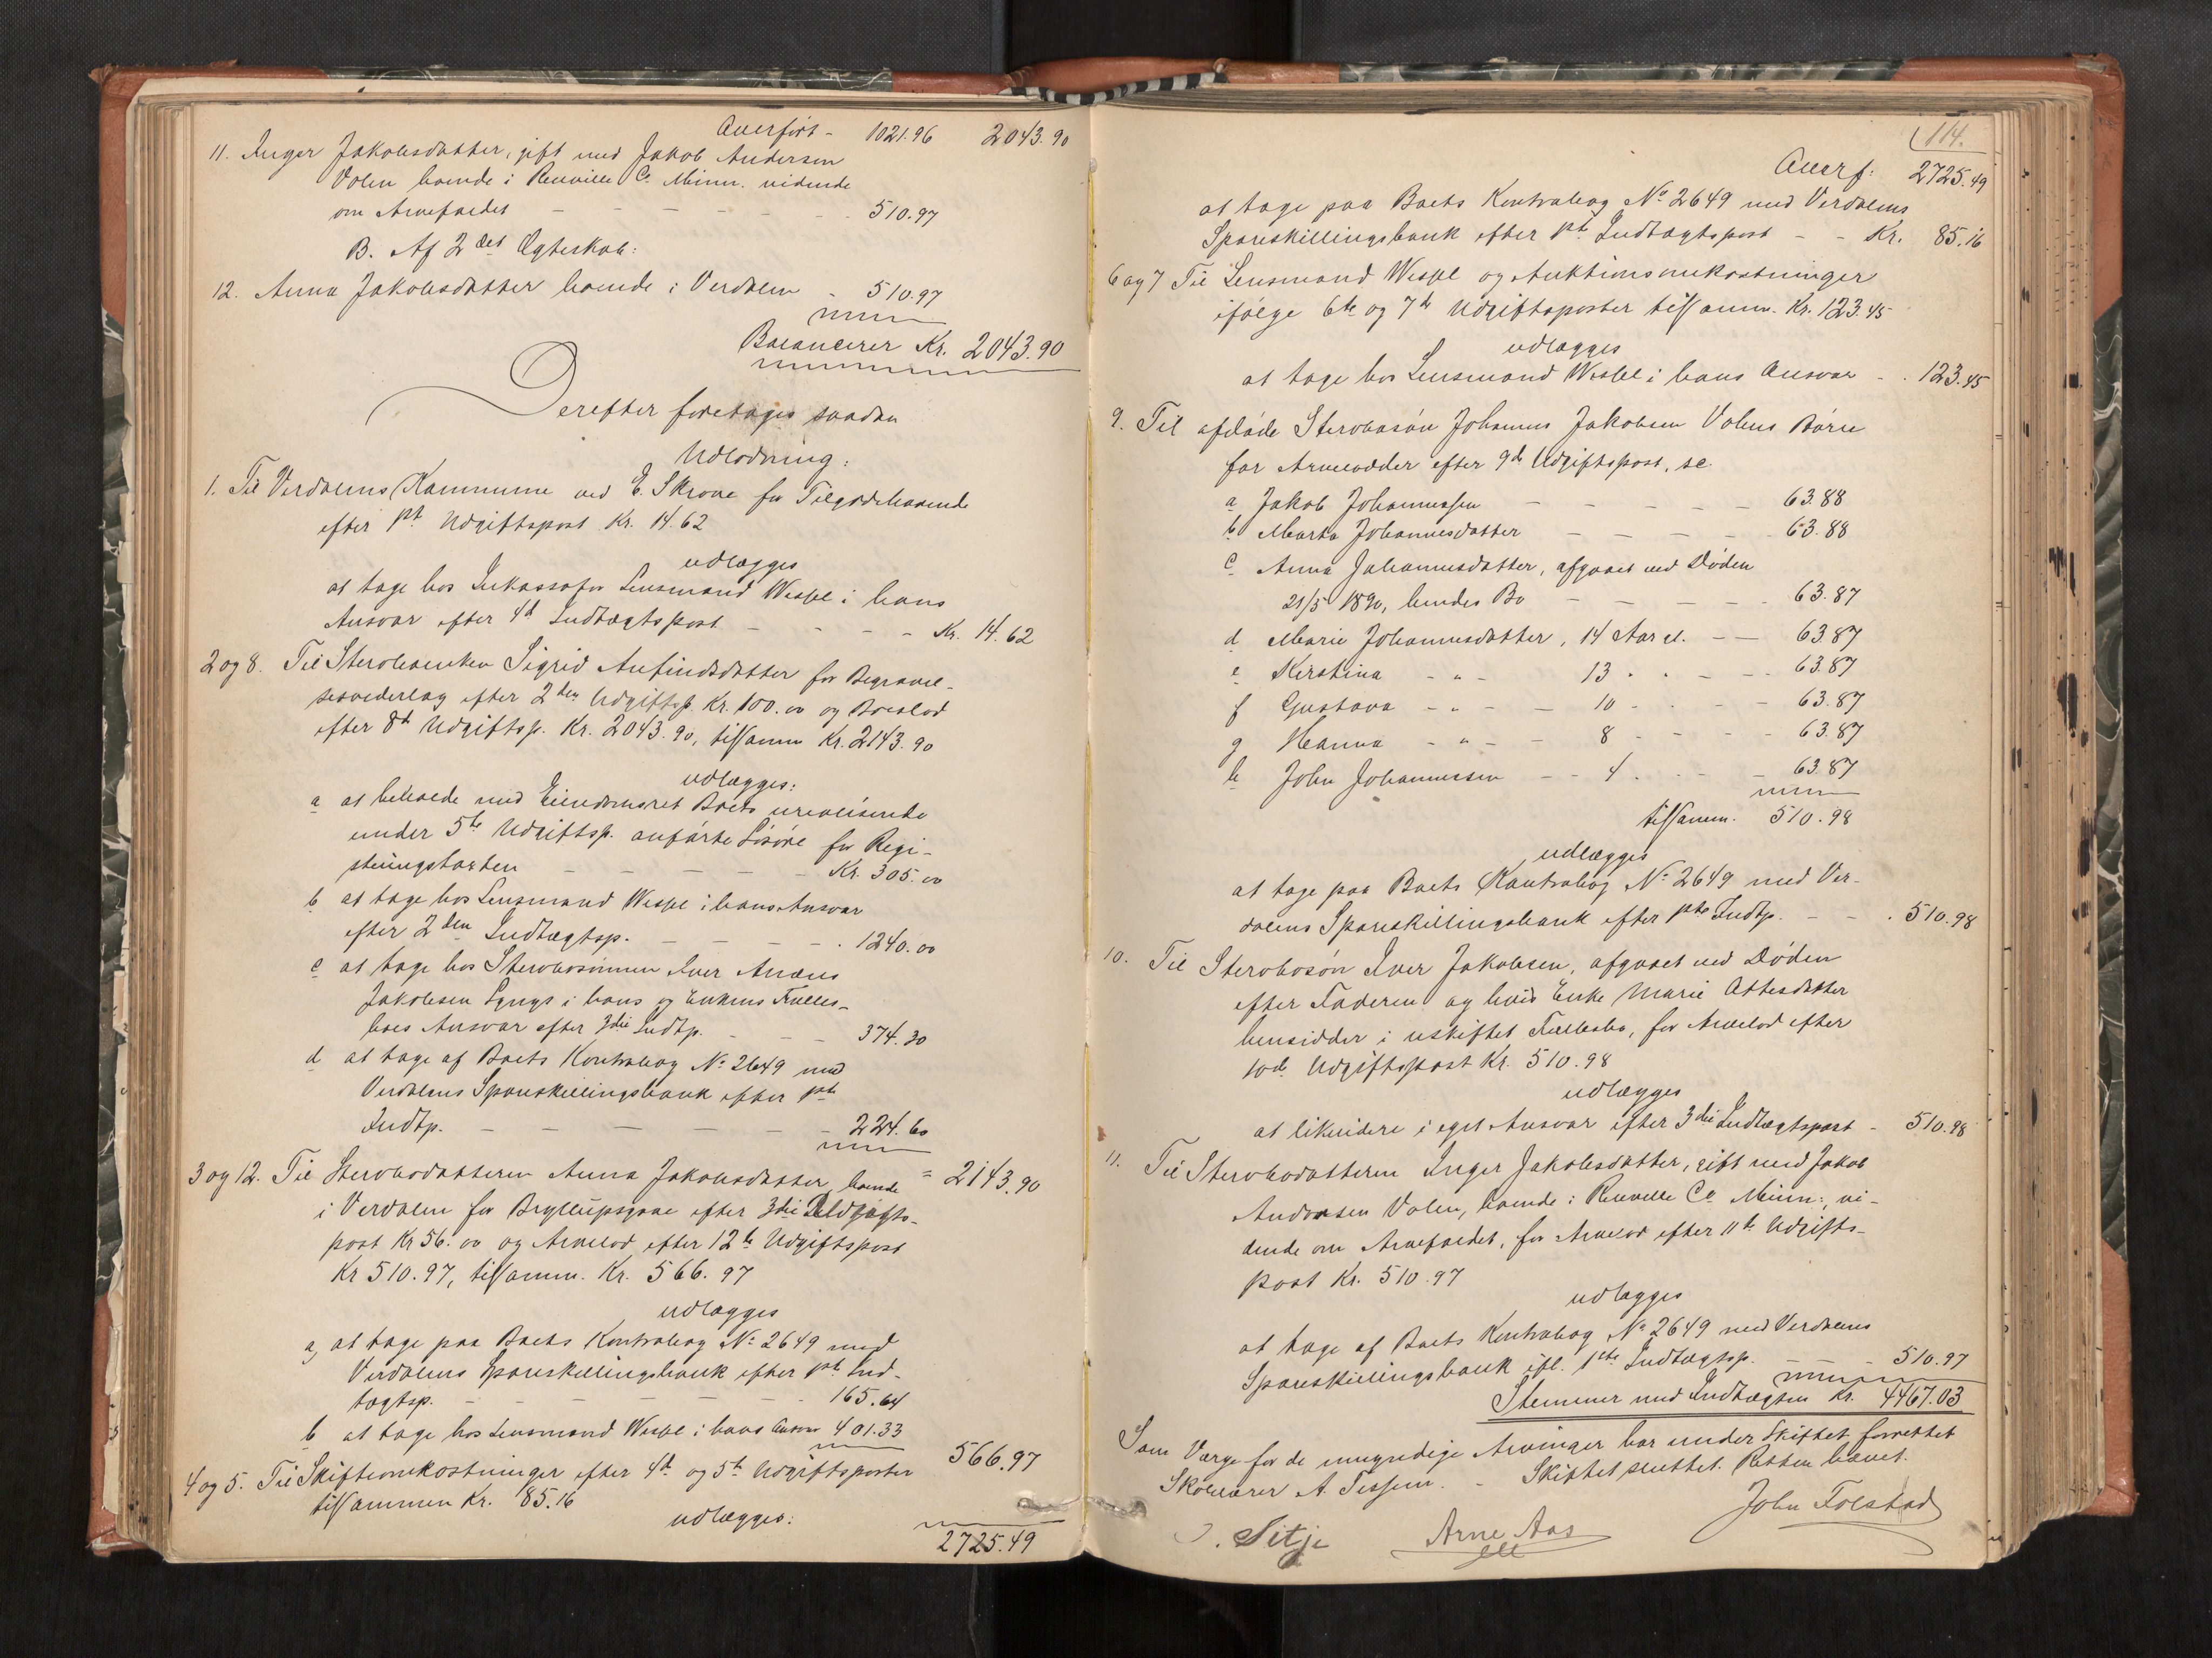 Overført - 1021.96 2043.90
11. Inger Jakobsdatter, gift med Jakob Andersen
Volen boende i Renville Co. Minn. vidende
om Arvefaldet - - - - - 510.97
B. Af 2det Ægteskab:
12. Anna Jakobsdatter boende i Verdalen - 510.97
Balancerer Kr. 2043.90
Derefter foretoges saadan
Udlodning:
1. Til Verdalens Kommune ved E. Skrove for Tilgodehavende
efter 1ste Udgiftspost Kr. 14.62
udlægges
at tage hos Inkassator Lensmand Wessel i hans
Ansvar efter 4de Indtægtspost - - - - Kr. 14.62
2 og 8. Til Stervboenken Sigrid Anfindsdatter for Begravel-
sesvederlag efter 2den Udgiftsp. Kr. 100.00 og Boeslod
efter 8de Udgiftsp. Kr. 2043.90, tilsamm Kr. 2143.90
udlægges:
a at beholde med Eiendomsret Boets urealiserede
under 5te Udgiftsp. anførte Løsøre for Regi-
streringstaxten - - - - - Kr. 305.00
b at tage hos Lensmand Wessel i hans Ansvar
efter 2den Indtægtsp. - - - - 1240.00
c at tage hos Stervbosønnen Iver Anæus
Jakobsen Lyngs i hans og Enkens Fælles-
boes Ansvar efter 3die Indtp. - - - 374.30
d at tage af Boets Kontrabog No 2649 med
Verdalens Spareskillingsbank efter 1ste
Indtp. - - - - - - 224.60
= 2143.90
3 og 12. Til Stervbodatteren Anna Jakobsdatter boende
i Verdalen for Bryllupsgave efter 3die Udgifts-
post Kr 56.00 og Arvelod efter 12te Udgiftspost
Kr 510.97, tilsamm. Kr. 566.97
udlægges
a, at tage paa Boets Kontrabog No 2649 med
Verdalens Spareskillingsbank efter 1ste Ind-
tægtsp. - - - - - - 165.64
b at tage hos Lensmand Wessel i hans Ansvar 401.33
566.97
4 og 5. Til Skifteomkostninger efter 4de og 5te Udgiftsposter
tilsammen Kr. 85.16
udlægges:
2725.49
114.
Overf: 2725.49
at tage paa Boets Kontrabog No 2649 med Verdalens
Spareskillingsbank efter 1ste Indtægtspost - - Kr. 85.16
6 og 7 Til Lensmand Wessel og Auktionsomkostninger
ifølge 6te og 7de Udgiftsposter tilsamm. Kr. 123.45
udlægges
at tage hos Lensmand Wessel i hans Ansvar - . 123.45
9. Til afdøde Stervbosøn Johannes Jakobsen Volens Børn
for Arvelodder efter 9de Udgiftspost, sc.
a Jakob Johannessen - - - - - 63.88
b Marta Johannesdatter - - - - - 63.88
c Anna Johannesdatter, afgaaet ved Døden
21/5 1890, hendes Bo - - - - - 63.87
d Marie Johannesdatter, 14 Aar gl. - - 63.87
e Kirstina - " - 13 - - - - 63.87
f Gustava - " - - 10 - - - - 63.87
g Hanna - " - - 8 - - - - 63.87
h John Johannessen - - 4 - - - 63.87
tilsamm. 510.98
udlægges
at tage paa Boets Kontrabog No 2649 med Ver-
dalens Spareskillingsbank efter 1ste Indtp. - - . 510.98
10. Til Stervbosøn Iver Jakobsen, afgaaet ved Døden
efter Faderen og hvis Enke Marie Ottesdatter
hensidder i uskiftet Fællesbo, for Arvelod efter
10de Udgiftspost Kr. 510.98
udlægges
at likvidere i eget Ansvar efter 3die Indtægtspost - 510.98
11. Til Stervbodatteren Inger Jakobsdatter, gift med Jakob
Andersen Volen, boende i Renville Co Minn:, vi-
dende om Arvefaldet, for Arvelod efter 11te Udgifts-
post Kr. 510.97
udlægges
at tage af Boets Kontrabog No 2649 med Verdalens
Spareskillingsbank ifl. 1ste Indtægtsp. - - - 510.97
Stemmer med Indtægten Kr. 4467.03
Som Værge for de umyndige Arvinger har under Skiftet forrettet
Skolelærer A. Tessem. - Skiftet sluttet. Retten hævet.
Sitje Arne Aas John Folstad